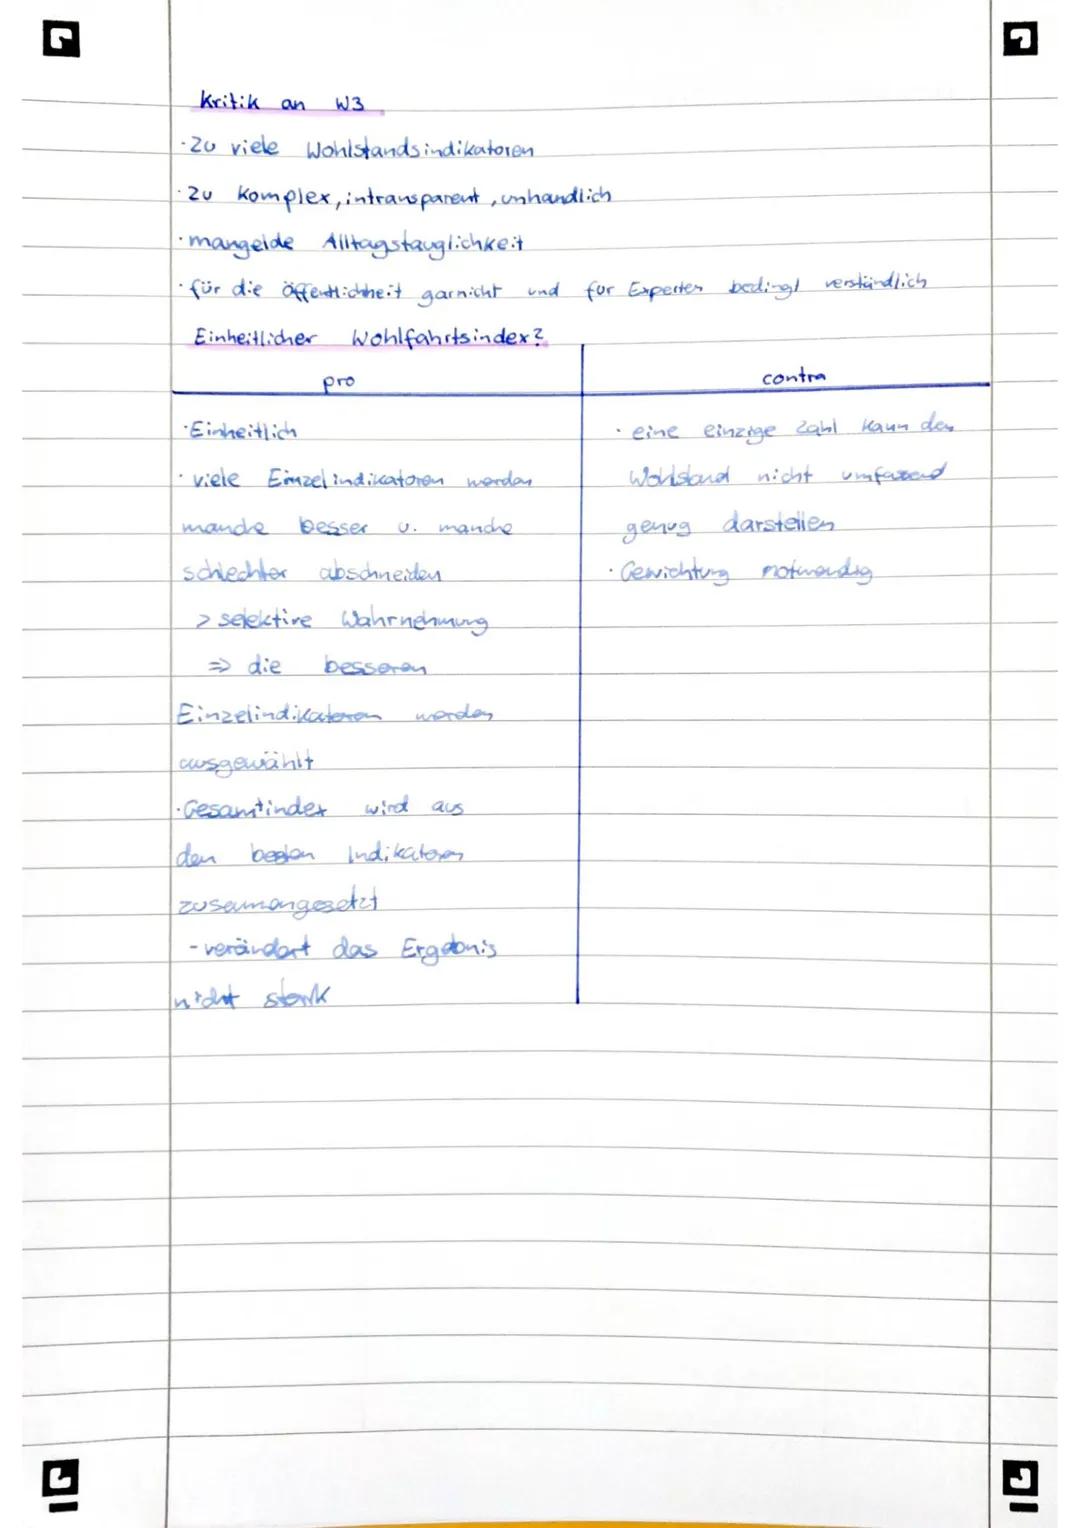 Kritik an W3
· Zu viele Wohlstandsindikatoren
· Zu komplex, intransparent, unhandlich
· mangelde Alltagstauglichkeit
· für die Öffentlichheit garnicht und für Experten bedingt verständlich
Einheitlicher Wohlfahrtsindex?
pro
· Einheitlich
· viele Einzelindikatoren werden
manche besser u. manche
schlechter abschneiden
> selektive Wahrnehmung
⇒ die besseren
Einzelindikatoren werden
ausgewählt
· Gesamtindex wird aus
den besten Indikatoren
zusammengesetzt
- verändert das Ergebnis
nicht stark
contra
· eine einzige Zahl kann den
Wohlstand nicht umfassend
genug darstellen
· Gewichtung notwendig